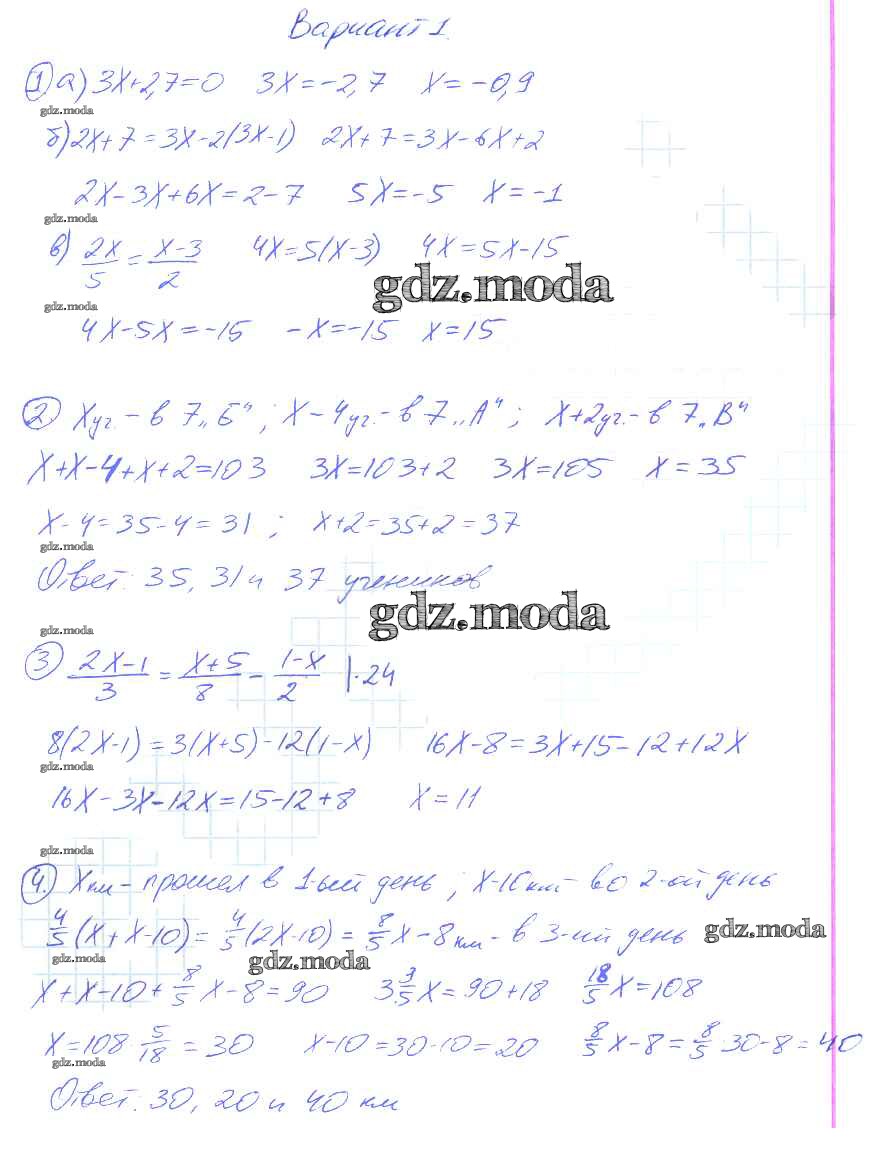 Вариант 1.
1. а) 3x+2,7=0 3x=-2,7 x=-0,9
gdz.moda
б) 2x+7=3x-2(3x-1) 2x+7=3x-6x+2
2x-3x+6x=2-7 5x=-5 x=-1
gdz.moda
в) 2x/5 = x-3/2 4x=5(x-3) 4x=5x-15
gdz.moda
gdz.moda
4x-5x=-15 -x=-15 x=15
2. x уч. - в 7 „Б"; x-4 уч. - в 7 „А"; x+2 уч. - в 7 „В"
x+x-4+x+2=103 3x=103+2 3x=105 x=35
x-4=35-4=31; x+2=35+2=37
gdz.moda
Ответ: 35, 31 и 37 учеников
gdz.moda
gdz.moda
3 2x-1/3 = x+5/8 - 1-x/2 |·24
8(2x-1)=3(x+5)-12(1-x) 16x-8=3x+15-12+12x
gdz.moda
16x-3x-12x=15-12+8 x=11
gdz.moda
4. x км - прошел в 1-ый день; x-10 км - во 2-ой день
4/5(x+x-10)=4/5(2x-10)=8/5x-8 км - в 3-ий день
gdz.moda
gdz.moda
gdz.moda
x+x-10+8/5x-8=90 3 3/5x=90+18 18/5x=108
x=108·5/18=30 x-10=30-10=20 8/5x-8=8/5·30-8=40
gdz.moda
Ответ: 30, 20 и 40 км